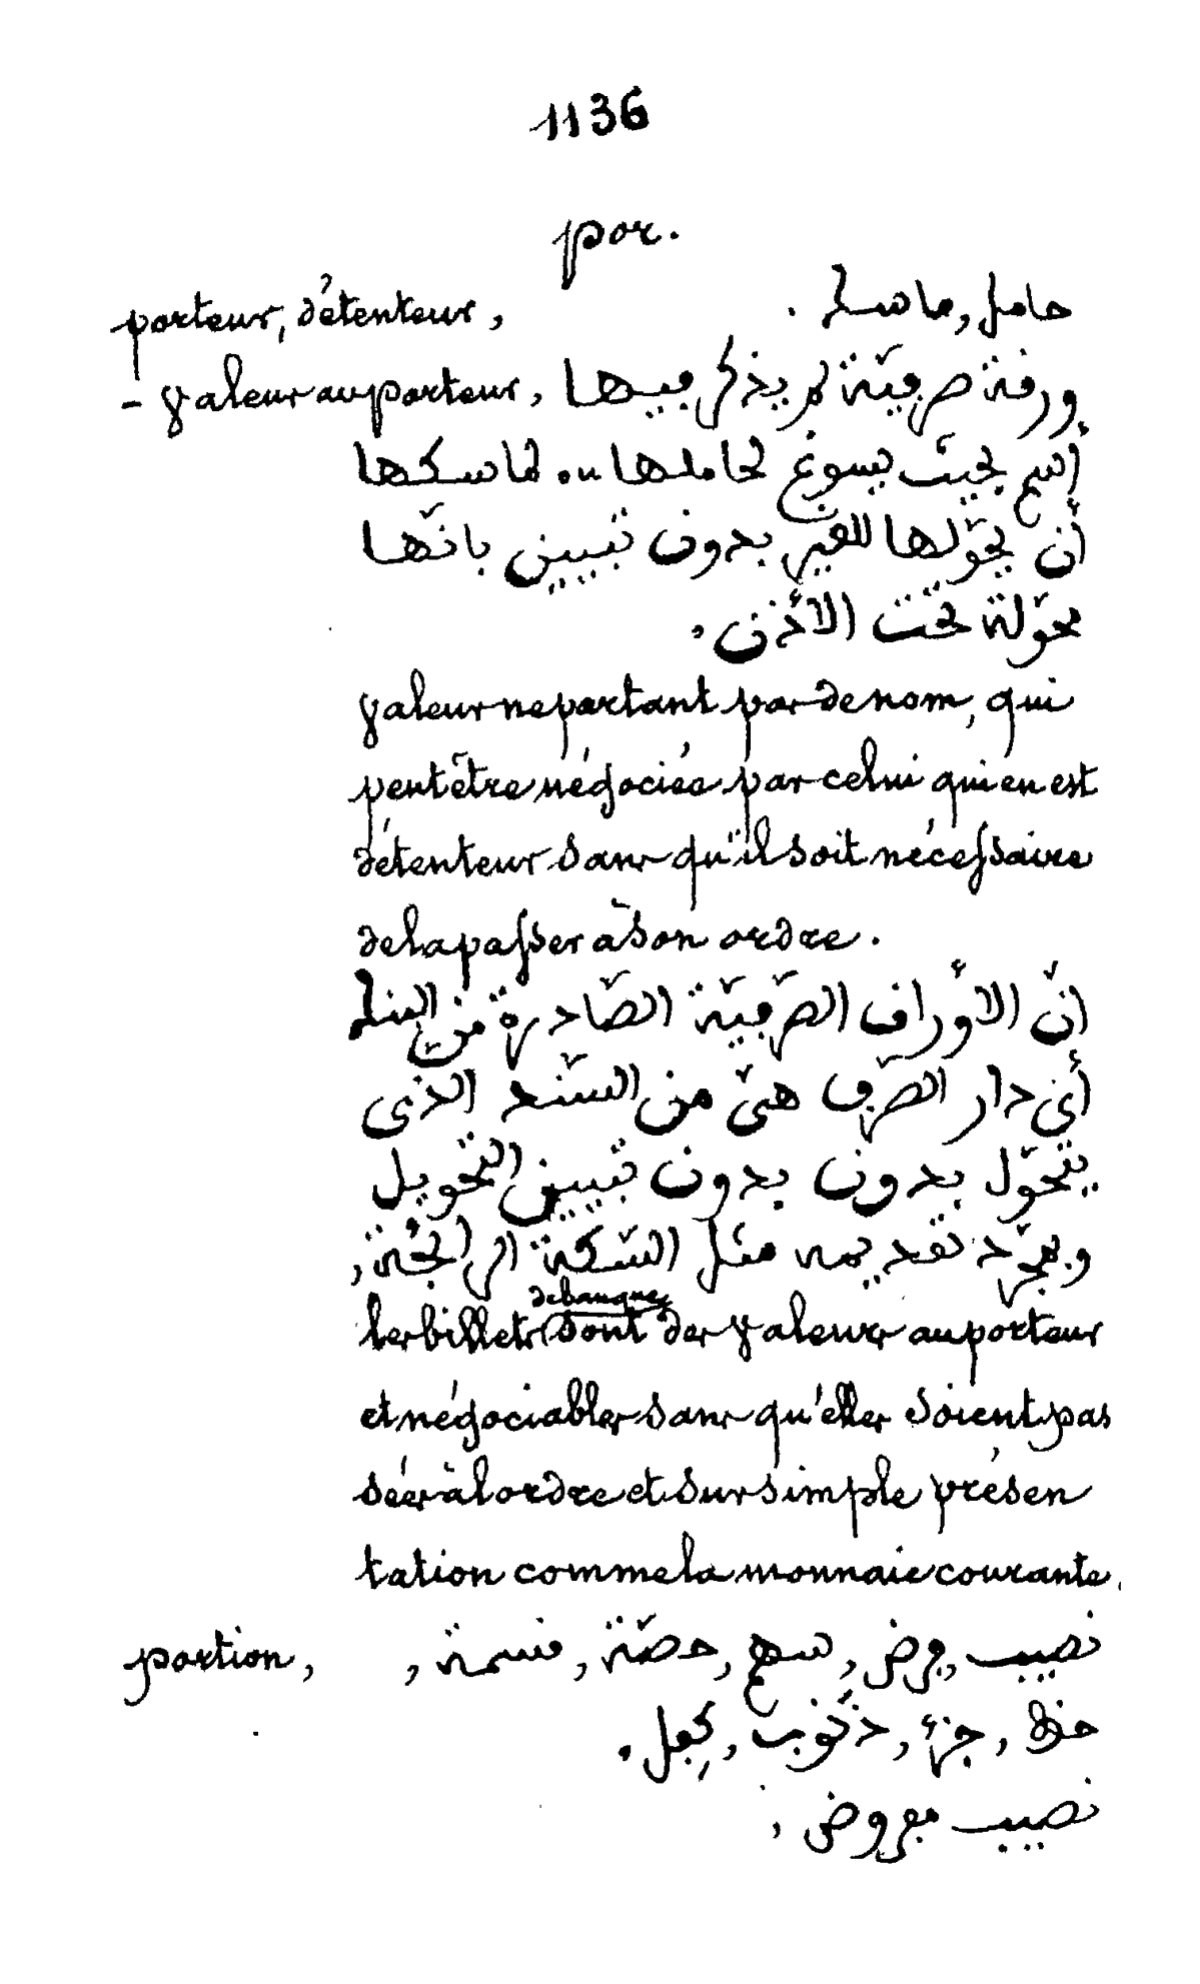 1136
por.
porteur, détenteur, حامل, ماسك.
- valeur au porteur, ورقة صرفيّة لم يذكر فيها
أسم بحيث يسوغ لحاملها او لماسكها
أن يحوّلها للغير بدون تبيين بانّها
محوّلة تحت الأذن.
valeur ne portant pas de nom, qui
peut être négociée par celui qui en est
détenteur sans qu'il soit nécessaire
de la passer à son ordre.
انّ الأوراق الصّرفيّة الصّادرة من البنك
أي دار الصّرف هىّ من السّند الذى
يتحوّل بدون بدون تبيين التحويل
وبمجرّد تقديمه مثل السّكّة الرائجة,
les billets de banque sont des valeurs au porteur
et négociables sans qu'elles soient pas
sées à l'ordre et sur simple présen
tation comme la monnaie courante.
portion, نصيب, فرض, سهم, حصّة, قسمة,
حظ, جزء, ذنوب, كِفل.
نصيب مفروض,